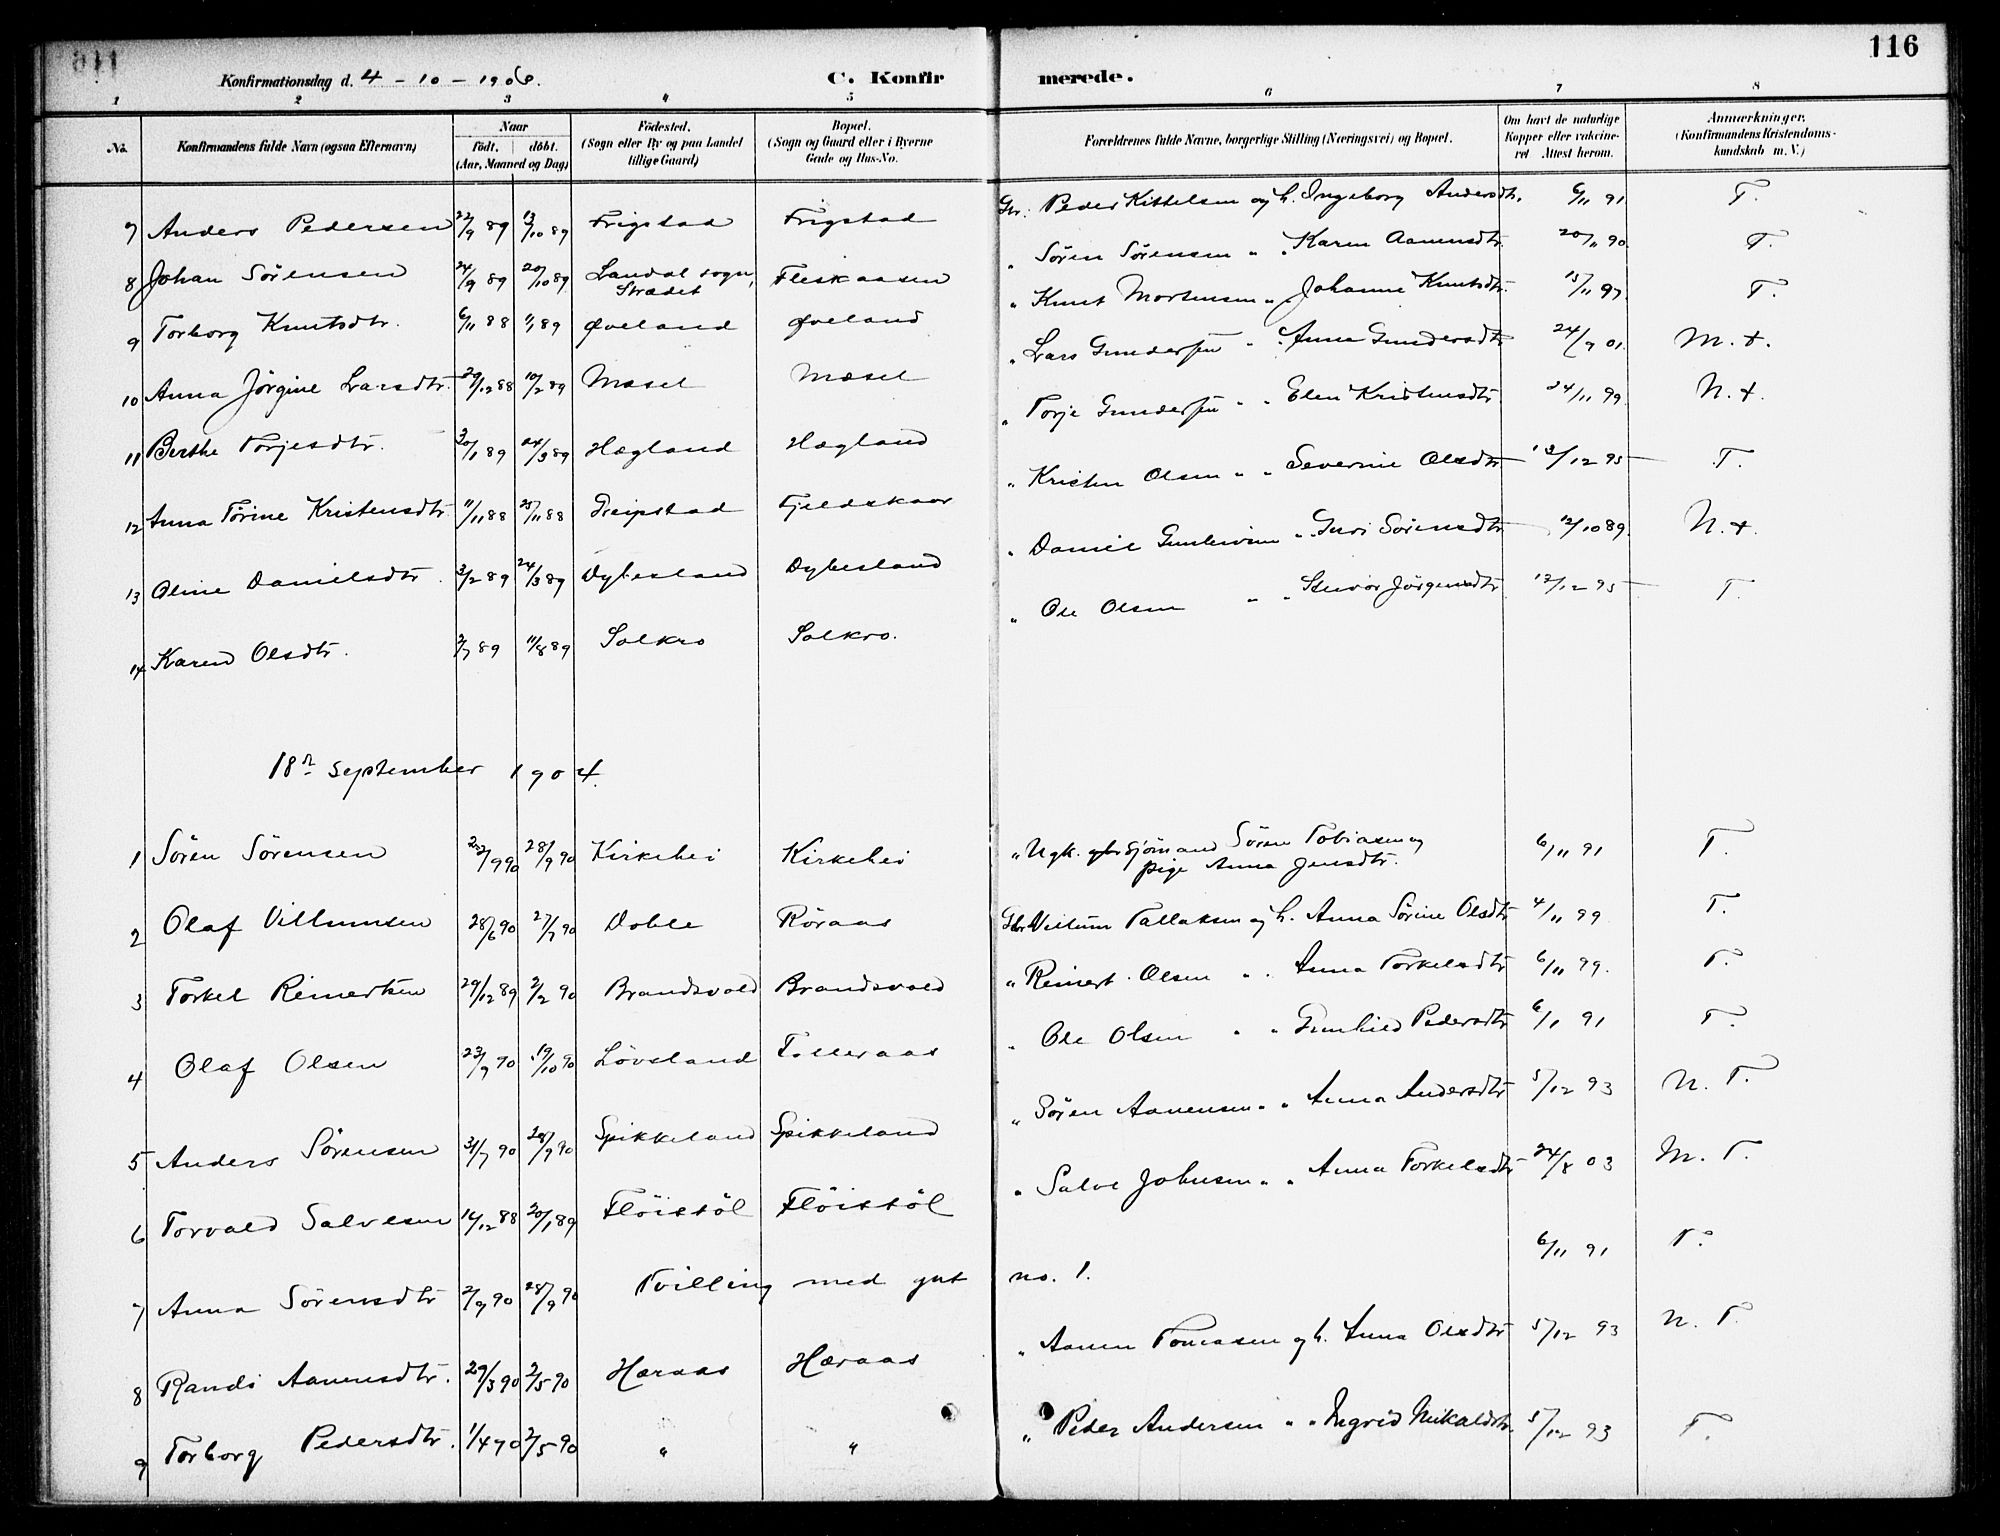 116
Konfirmationsdag d. 4 - 10 - 1906.
C. Konfir merede.
1 2 3 4 5 6 7 8
No. Konfirmandens fulde Navn (ogsaa Efternavn) Naar født. døbt. (Aar, Maaned og Dag) Fødested. (Sogn eller By og paa Landet tillige Gaard) Bopæl. (Sogn og Gaard eller i Byerne Gade og Hus-No. Forældrenes fulde Navne, borgerlige Stilling (Næringsvei) og Bopæl. Om havt de naturlige Kopper eller vakcineret Attest herom. Anmærkninger. (Konfirmandens Kristendomskundskab m. V.)
7 Anders Pedersen 22/9 89 13/10 89 Frigstad Frigstad Gbr. Peder Kittelsen og h. Ingeborg Andersdtr. 6/11 91 T.
8 Johan Sörensen 24/9 89 20/10 89 Landal sogn, Strædet Fleskaasen " Sören Sörensen " " Karen Aanensdtr. 20/11 90 T.
9 Torborg Knutsdtr. 6/11 88 1/1 89 Øveland Øveland " Knut Mortensen " " Johanne Knutsdtr. 15/11 97 T.
10 Anna Jörgine Larsdtr. 29/12 88 10/2 89 Mæsel Mæsel " Lars Gundersen " " Anna Gundersdtr 24/7 01 M. +.
11 Berthe Torjesdtr. 30/1 89 24/3 89 Hægland Hægland " Torje Gundersen " " Elen Kristensdtr 24/11 99 N. +.
12 Anna Törine Kristensdtr. 11/11 88 25/11 88 Greipstad Fjeldskaar " Kristen Olsen " " Severine Olsdtr 13/12 95 T.
13 Oline Danielsdtr. 3/2 89 24/3 89 Dybesland Dybesland " Daniel Gunlevsen " " Guri Sörensdtr 12/10 89 N. +.
14 Karen Olsdtr. 2/7 89 11/8 89 Solkro Solkro. " Ole Olsen " " Stuvor Jörgensdtr 12/12 95 T
18n September 1904.
1 Sören Sörensen 22/9 90 28/9 90 Kirkehei Kirkehei " Ugk. sjömand Sören Tobiasen og pige Anna Jensdtr. 6/11 91 T.
2 Olaf Villumsen 28/6 90 27/7 90 Doble Röraas Gbr Villum Tallaksen og h. Anna Sörine Olsdtr 4/11 99 T.
3 Torkel Reinertsen 29/12 89 2/2 90 Brandsvold Brandsvold " Reinert Olsen " " Anna Torkelsdtr 6/11 99. T.
4 Olaf Olsen 23/9 90 19/10 90 Lövsland Tolleraas " Ole Olsen " " Gunhild Pedersdtr 6/11 91 T.
5 Anders Sörensen 31/7 90 28/9 90 Spikkeland Spikkeland " Sören Aanensen " " Anna Andersdtr 5/12 93 N. T.
6 Torvald Salvesen 14/12 88 20/1 89 Flöistöl Flöistöl " Salve Johnsen " " Anna Torkelsdtr 24/8 03 M. T.
7 Anna Sörensdtr 2/9 90 28/9 90 Tvilling med gut no. 1. 6/11 91 T.
8 Randi Aanensdtr. 29/3 90 2/5 90 Høraas Høraas " Aanen Tomasen og h. Anna Olsdtr 5/12 93 N. T.
9 Torborg Pedersdtr. 1/4 90 2/5 90 " " " Peder Andersen " " Ingrid Mikaldtr. 5/12 93 T.